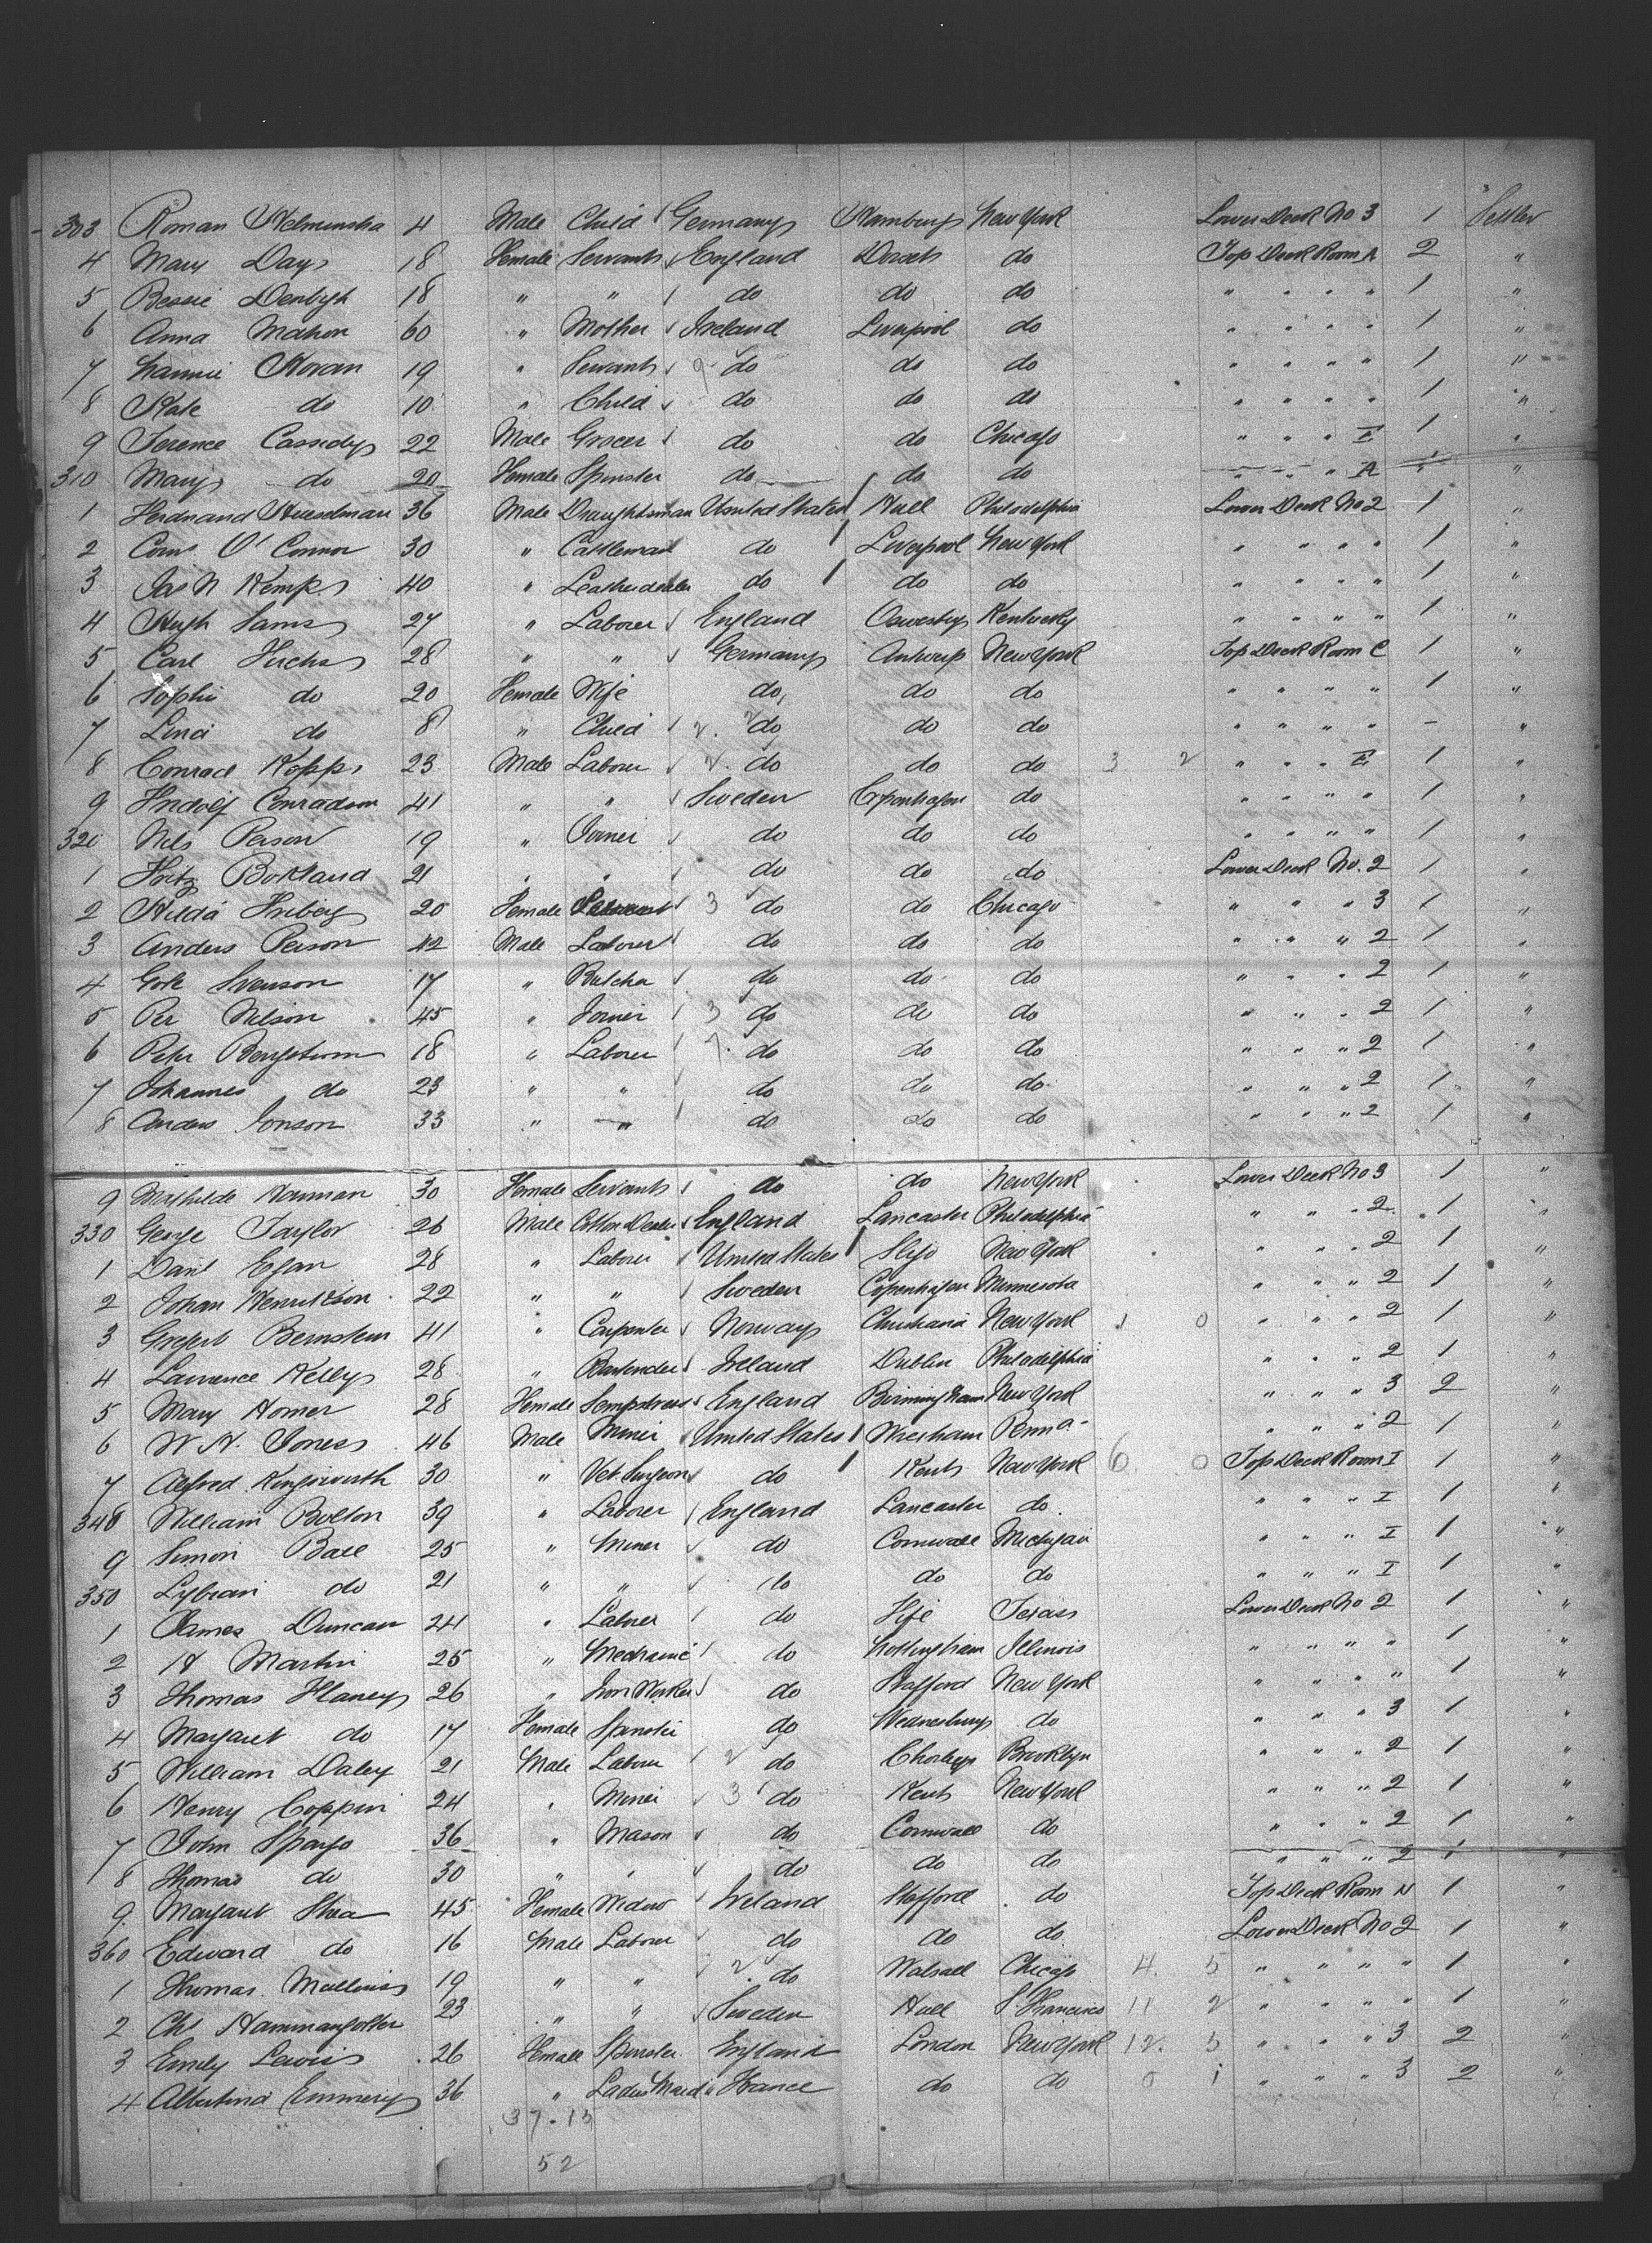 303 Roman 4 Male Child Germany Hamburg New York Lower Deck No 3 1 Settler
4 Mary Day 18 Female Servant England Dorset do Top Deck Room A 2 "
5 Bessie Denbigh 18 " " do do do " " " " 1 "
6 Anna Mahon 60 " Mother Ireland Liverpool do " " " " 1 "
7 Nannie Horan 19 " Servant do do do " " " " 1 "
8 Kate do 10 " Child do do do " " " " 1 "
9 Terence Cassidy 22 Male Grocer do do Chicago " " " E 1 "
310 Mary do 20 Female Spinster do do do " " " A "
1 Ferdinand 36 Male Draughtsman United States Hull Philadelphia Lower Deck No 2 1 "
2 Corns O'Connor 30 " Cattleman do Liverpool New York " " " " 1 "
3 Jas N Kemp 40 " Leatherdealer do do do " " " " 1 "
4 Hugh Sams 27 " Laborer England Oswestry Kentucky " " " " 1 "
5 Carl Fuchs 28 " " Germany Antwerp New York Top Deck Room C 1 "
6 Sophi do 20 Female Wife do do do " " " " 1 "
7 Lina do 8 " Child 2. 2 do do do " " " " - "
8 Conrad Kopp 23 Male Laborer 2. do do do 3 2 " " " E 1 "
9 Conradson 41 " " Sweden Copenhagen do " " " " 1 "
320 Nils Person 19 " Joiner do do do " " " " 1 "
1 Fritz Bokland 21 " " do do do Lower Deck No. 2 1 "
2 Hilda Friberg 20 Female Servant 3 do do Chicago " " " 3 1 "
3 Anders Person 42 Male Laborer do do do " " " 2 1 "
4 Svenson 17 " Butcher do do do " " " 2 1 "
5 Per Nilson 45 " Joiner 3 do do do " " " 2 1 "
6 Pehr Bengstrom 18 " Laborer do do do " " " 2 1 "
7 Johannes do 23 " " do do do " " " 2 1 "
8 Anders Jonson 33 " " do do do " " " 2 1 "
9 Mathilde Norman 30 Female Servant do do New York Lower Deck No 3 1 "
330 George Taylor 26 Male Cotton Dealer England Lancaster Philadelphia " " " 2 1 "
1 Danl Egan 28 " Laborer United States Sligo New York " " " 2 1 "
2 Johan Henrikson 22 " " Sweden Copenhagen Minnesota " " " 2 1 "
3 Bernstein 41 " Carpenter Norway Christiania New York 1 0 " " " 2 1 "
4 Lawrence Kelly 28 " Bartender Ireland Dublin Philadelphia " " " 2 1 "
5 Mary Homer 28 Female Sempstress England Birmingham New York " " " 3 2 "
6 W H Jones 46 Male Miner United States Wrexham Penna " " " 2 1 "
7 Alfred Kingsworth 30 " Vet. Surgeon do Kent New York 6 0 Top Deck Room I 1 "
348 William Bolton 39 " Laborer England Lancaster do " " " I 1 "
9 Simon Ball 25 " Miner do Cornwall Michigan " " " I 1 "
350 do 21 " " do do do " " " I 1 "
1 James Duncan 24 " Laborer do Fife Texas Lower Deck No 2 1 "
2 H Martin 25 " Mechanic do Nottingham Illinois " " " " 1 "
3 Thomas Flaney 26 " Iron Worker do Stafford New York " " " " 1 "
4 Margaret do 17 Female Spinster do Wednesbury do " " " 3 1 "
5 William Daley 21 Male Laborer 2 do Chorley Brooklyn " " " 2 1 "
6 Henry Coppin 24 " Miner 3 do Kent New York " " " 2 1 "
7 John Spargo 36 " Mason do Cornwall do " " " 2 1 "
8 Thomas do 30 " " do do do " " " 2 1 "
9 Margaret Shea 45 Female Widow Ireland Stafford do Top Deck Room N 1 "
360 Edward do 16 Male Laborer do do do Lower Deck No 2 1 "
1 Thomas Mullins 19 " " 2. do Walsall Chicago 4. 5 " " " " 1 "
2 Chs 23 " " Sweden Hull S. Francisco 11 2 " " " " 1 "
3 Emily Lewis 26 Female Spinster England London New York 12. 3 " " " 3 2 "
4 Albertina Emmery 36 " Ladies Maid France do do 0 1 " " " 3 2 "
37 - 15
52